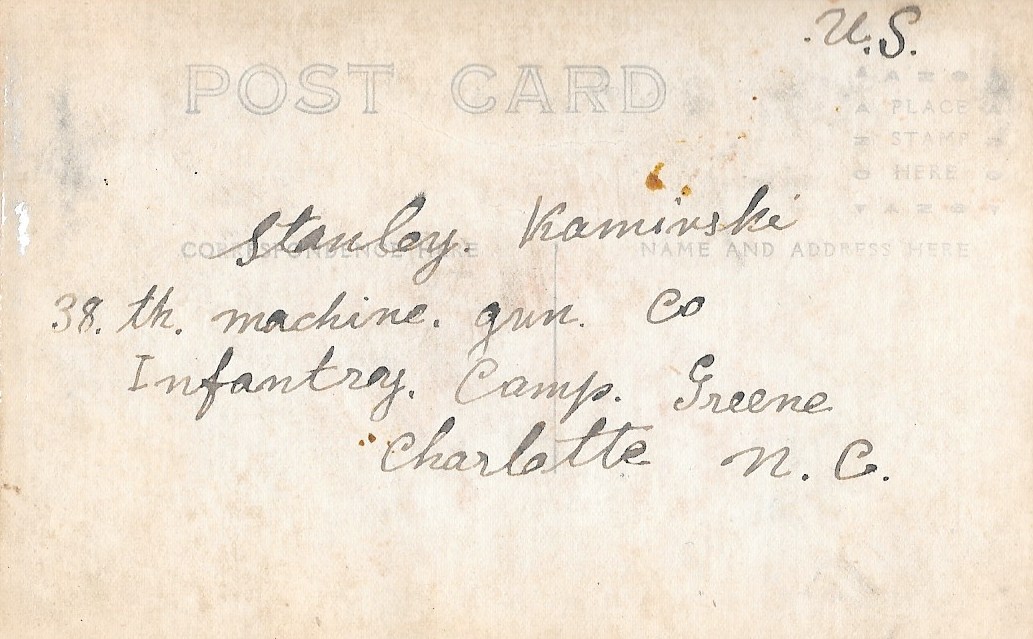 .U.S.
POST CARD
AZO
PLACE
STAMP
HERE
AZO
Stanley Kaminski
CORRESPONDENCE HERE NAME AND ADDRESS HERE
38. th. machine. gun. Co
Infantry. Camp. Greene
Charlotte N. C.